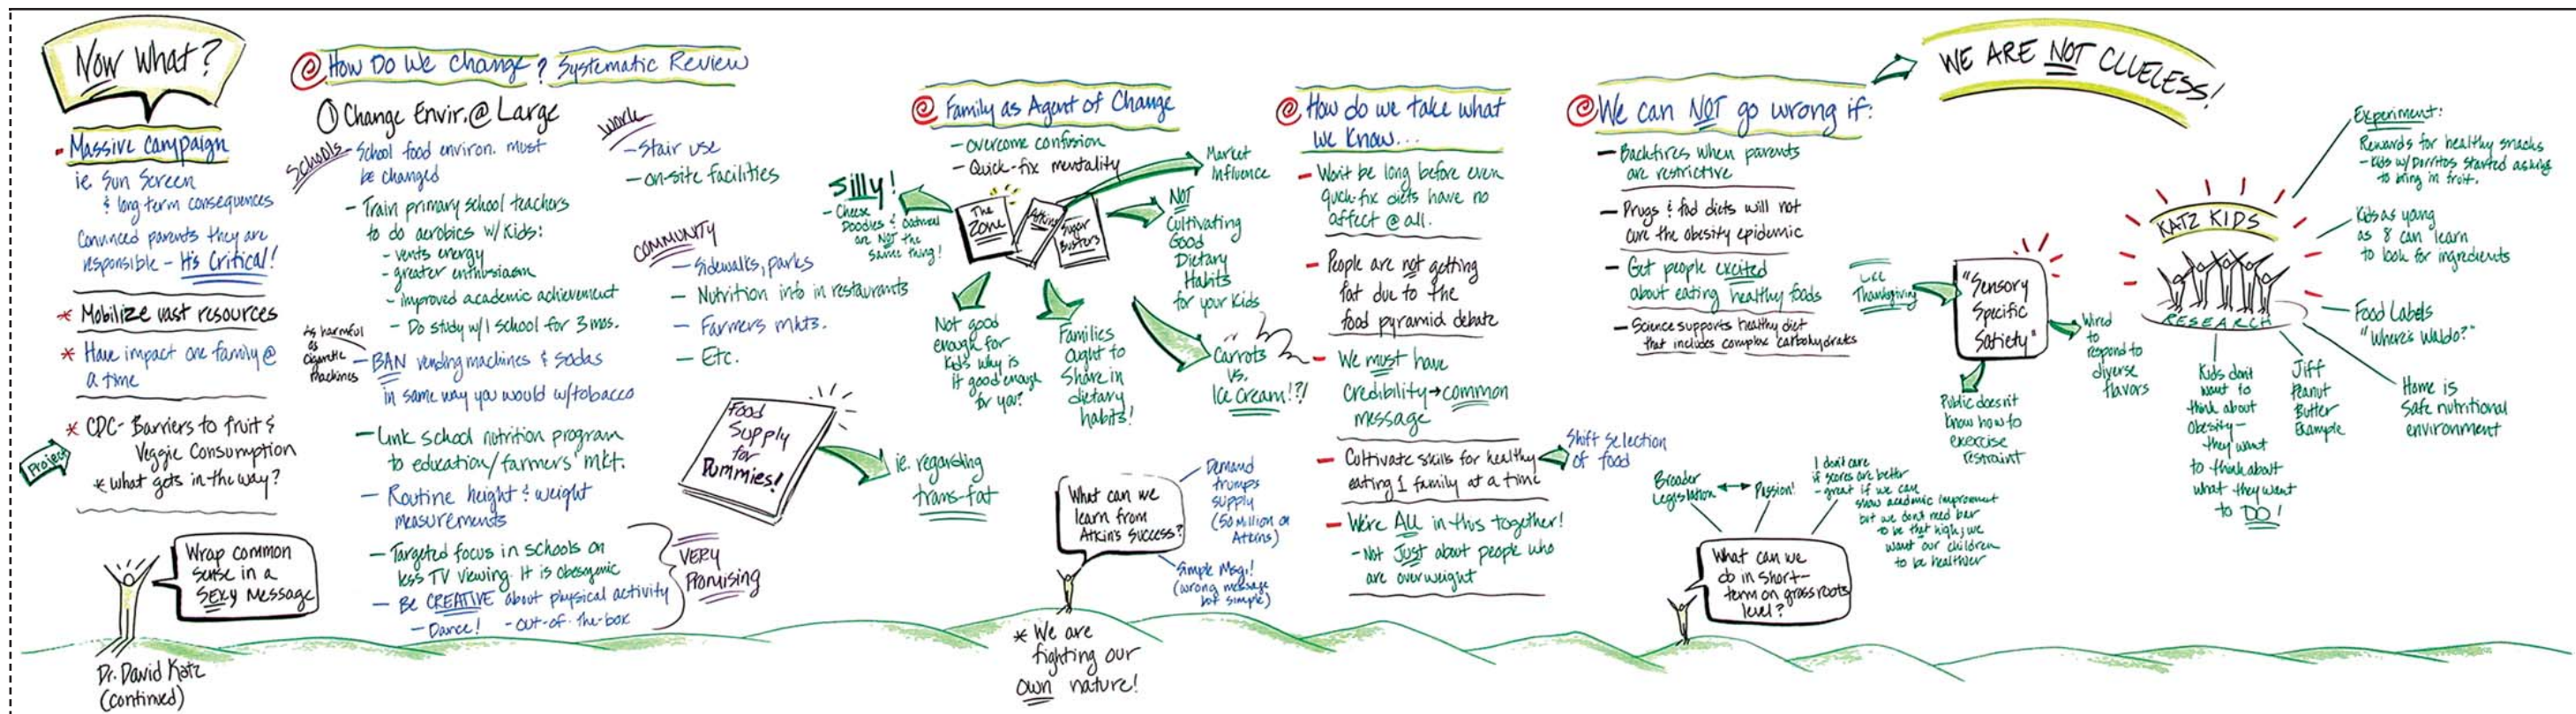 Now What?
- Massive Campaign
ie. Sun Screen
& long term consequences
Convinced parents they are
responsible - It's Critical!
* Mobilize vast resources
* Have impact one family @
a time
Project
* CDC - Barriers to fruit &
Veggie Consumption
* what gets in the way?
Wrap common
sense in a
SEXY Message
Dr. David Katz
(continued)
@ How Do We Change? Systematic Review
① Change Envir. @ Large
Schools
- School food environ. must
be changed
- Train primary school teachers
to do aerobics w/kids:
- vents energy
- greater enthusiasm
- improved academic achievement
- Do study w/1 school for 3 mos.
As harmful
as
cigarette
machines
- BAN vending machines & sodas
in same way you would w/tobacco
- Link school nutrition program
to education/farmers' mkt.
- Routine height & weight
measurements
- Targeted focus in schools on
less TV viewing. It is obesogenic
- Be CREATIVE about physical activity
- Dance! - out-of-the-box
VERY
Promising
Work
- Stair use
- on-site facilities
COMMUNITY
- Sidewalks, parks
- Nutrition info in restaurants
- Farmers mkts.
- Etc.
Food
Supply
for
Dummies!
ie. regarding
trans-fat
@ Family as Agent of Change
- overcome confusion
- Quick-fix mentality
Silly!
- Cheese
Doodles & oatmeal
are NOT the
same thing!
The
Zone
Atkins
Sugar
Busters
Market
Influence
NOT
Cultivating
Good
Dietary
Habits
for your kids
Not good
enough for
kids why is
it good enough
for you?
Families
ought to
Share in
dietary
habits!
Carrots
vs.
Ice Cream!?!
What can we
learn from
Atkin's success?
Demand
trumps
supply
(50 Million on
Atkins)
Simple Msg!
(wrong message
but simple)
* We are
fighting our
own nature!
@ How do we take what
we know...
- Won't be long before even
quick-fix diets have no
affect @ all.
- People are not getting
fat due to the
food pyramid debate
- We must have
Credibility → common
message
- Cultivate skills for healthy
eating 1 family at a time
Shift selection
of food
- We're ALL in this together!
- Not Just about people who
are overweight
@ We can NOT go wrong if:
- Backfires when parents
are restrictive
- Drugs & fad diets will not
cure the obesity epidemic
- Get people excited
about eating healthy foods
- Science supports healthy diet
that includes complex carbohydrates
WE ARE NOT CLUELESS!
Like
Thanksgiving
"Sensory
Specific
Satiety"
Wired
to
respond to
diverse
flavors
Public doesn't
know how to
exercise
restraint
Broader
Legislation
Passion!
I don't care
if scores are better
- great if we can
show academic improvement
but we don't need bar
to be that high; we
want our children
to be healthier
What can we
do in short-
term on grassroots
level?
KATZ KIDS
RESEARCH
Experiment:
Rewards for healthy snacks
- Kids w/Dorritos started asking
to bring in fruit.
Kids as young
as 8 can learn
to look for ingredients
Food Labels
"Where's Waldo?"
Home is
Safe nutritional
environment
Jiff
Peanut
Butter
Example
Kids don't
want to
think about
obesity -
they want
to think about
what they want
to DO!